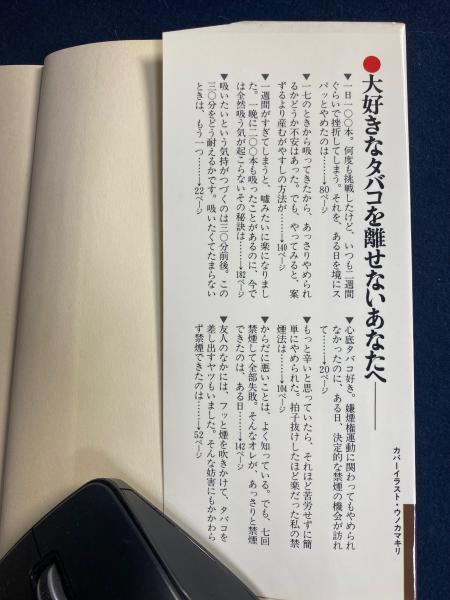 ●大好きなタバコを離せないあなたへ――
▼一日一〇〇本。何度も挑戦したけど、いつも二週間
ぐらいで挫折してしまう。それを、ある日を境にス
パッとやめたのは……→80ページ
▼一七のときから吸ってきたから、あっさりやめられ
るかどうか不安はあった。でも、やってみると、案
ずるより産むがやすしの方法が……→140ページ
▼一週間がすぎてしまうと、嘘みたいに楽になりまし
た。一晩に二〇〇本も吸ったことがあるのに、今で
は全然吸う気が起こらないその秘訣は……→182ページ
▼吸いたいという気持がつづくのは三〇分前後。この
三〇分をどう耐えるかです。吸いたくてたまらない
ときは、もう一つ……→22ページ
▼心底タバコ好き。嫌煙権運動に関わってもやめられ
なかったのに、ある日、決定的な禁煙の機会が訪れ
て……→20ページ
▼もっと辛いと思っていたら、それほど苦労せずに簡
単にやめられた。拍子抜けしたほど楽だった私の禁
煙法は……→104ページ
▼からだに悪いことは、よく知っている。でも、七回
禁煙して全部失敗。そんなオレが、あっさりと禁煙
できたのは、ある日……→142ページ
▼友人のなかには、フッと煙を吹きかけて、タバコを
差し出すヤツもいました。そんな妨害にもかかわら
ず禁煙できたのは……→52ページ
カバーイラスト・ウノカマキリ